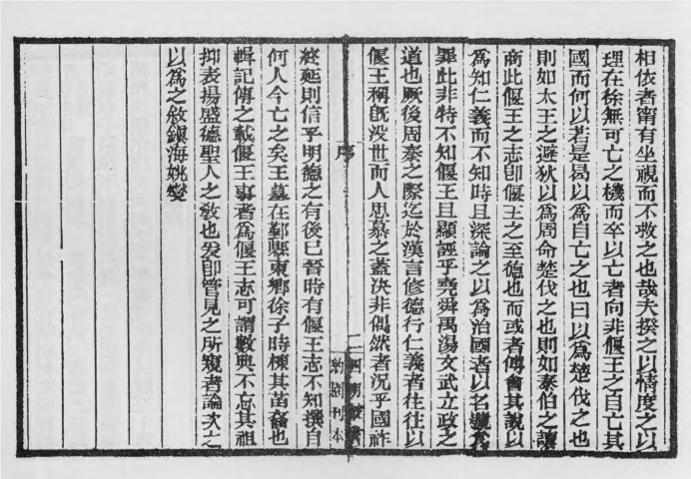 相依者甯有坐視而不救之也哉夫揆之以情度之以
理在徐無可亡之機而卒以亡者向非偃王之自亡其
國而何以若是曷以為自亡之也曰以為楚伐之也
則如太王之避狄以為周命楚伐之也則如泰伯之讓
商此偃王之志卽偃王之至德也而或者傅會其說以
為知仁義而不知時且深論之以為治國者以名
罪此非特不知偃王且顯誣乎堯舜禹湯文武立政之
道也厥後周秦之際迄於漢言修德行仁義者往往以
偃王稱旣沒世而人思慕之蓋決非偶然者況乎國祚
序
二
四明叢書
約園刊本
終延則信乎明德之有後已晉時有偃王志不知撰自
何人今亡之矣王墓在鄞縣東鄉徐子時棟其苗裔也
輯記傳之載偃王事者為偃王志可謂數典不忘其祖
抑表揚盛德聖人之教也爰卽管見之所窺者論次之
以為之敘鎮海姚燮